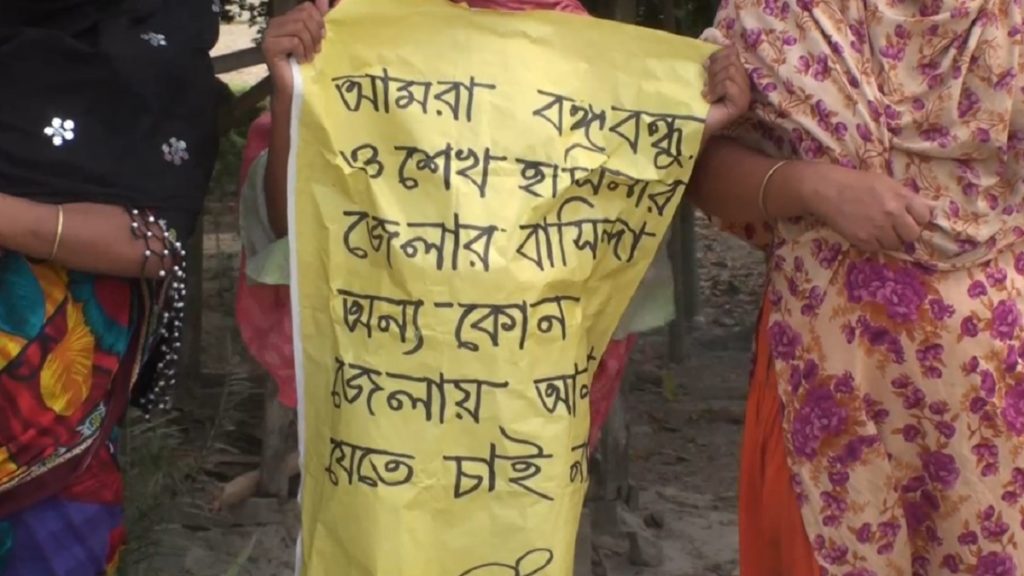 আমরা বঙ্গবন্ধু
ও শেখ হাসিনার
জেলার বাসিন্দা
অন্য-কোন
জেলায়
যেতে চাই